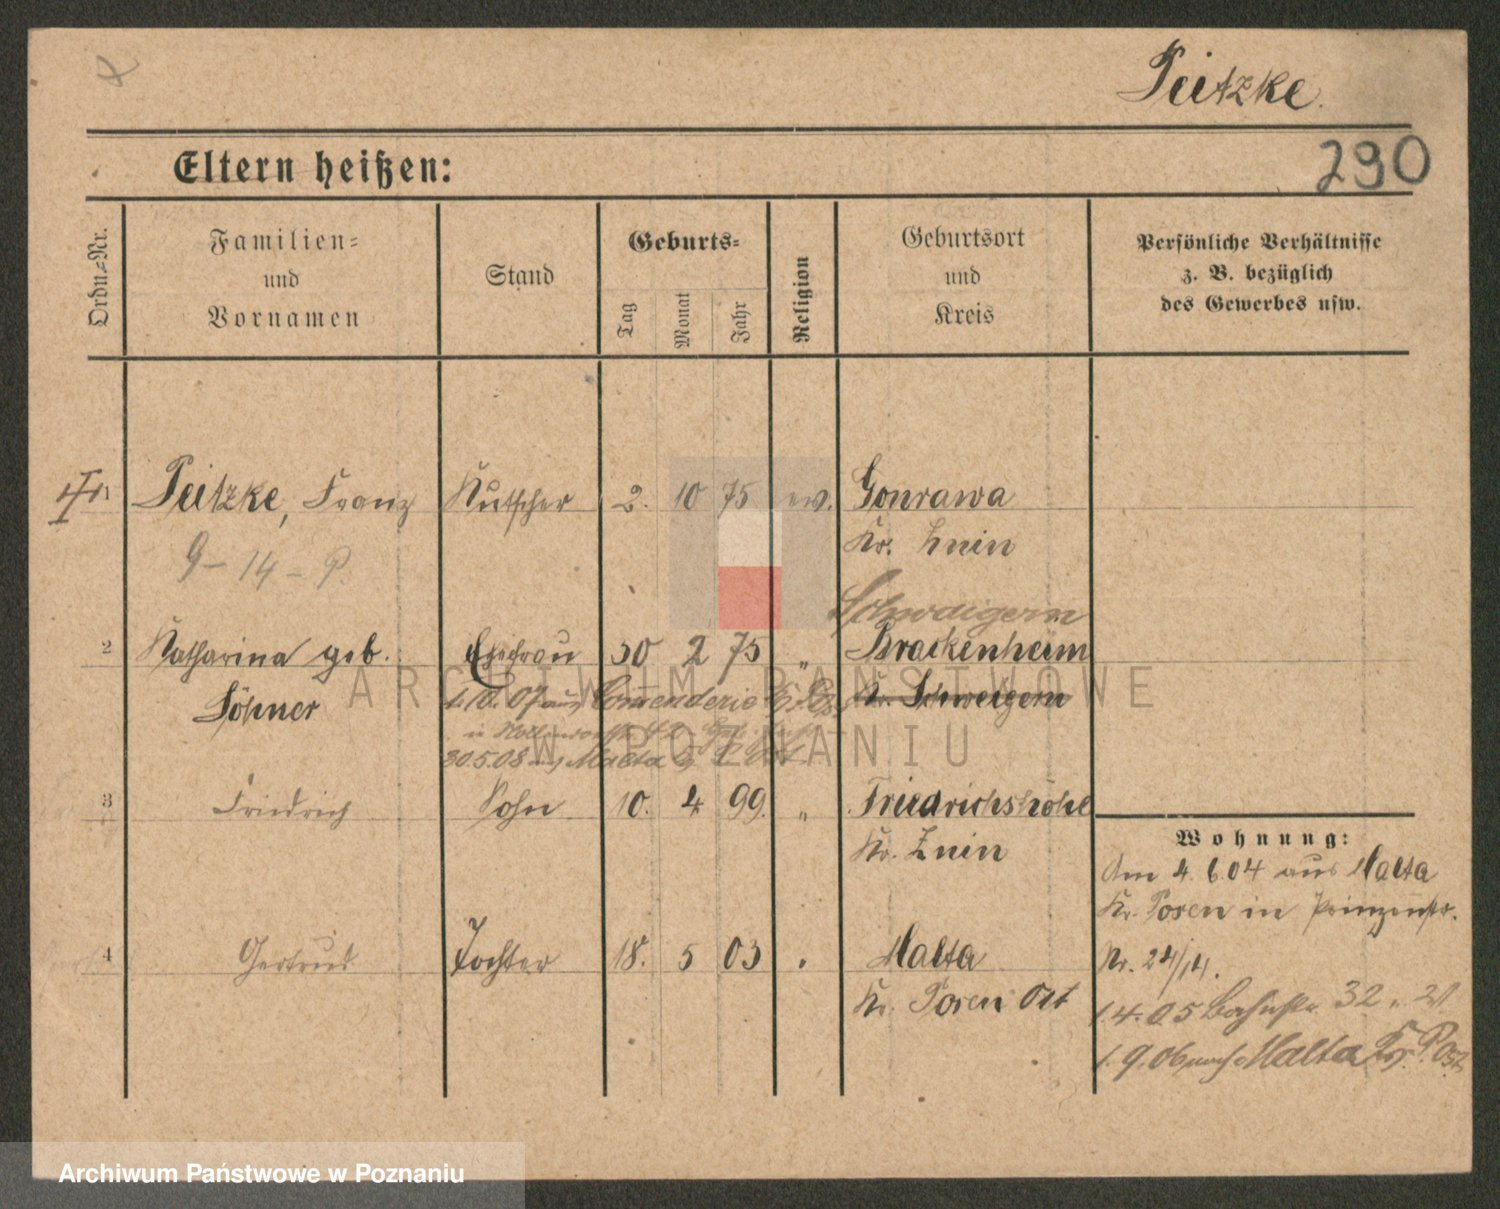 Peitzke.
290
Eltern heißen:
Ordn.=Nr.
Familien=
und
Vornamen
Stand
Geburts=
Tag
Monat
Jahr
Religion
Geburtsort
und
Kreis
Persönliche Verhältnisse
z. B. bezüglich
des Gewerbes usw.
1 Peitzke, Franz Kutscher 2. 10 75 ev. Gonsawa
Kr. Znin
9 - 14 - P.
Schwaigern
2 Katharina geb. Ehefrau 30 2 75 " Brackenheim
Söhner
Kr. Schweigern
1.10.07 aus Commenderie Kr. Pos.
in
30.5.08 Malta
3 Friedrich Sohn 10. 4 99. " Friedrichshöhe
Kr. Znin
Wohnung:
Am 4.6.04 aus Malta
Kr. Posen in Prinzenstr.
Nr. 24/14.
4 Gertrud Tochter 18. 5 03 " Malta
Kr. Posen Ost
1.4.05 Bahnstr. 32
1.9.06 nach Malta Kr. P. Ost
ARCHIWUM PAŃSTWOWE
W POZNANIU
Archiwum Państwowe w Poznaniu